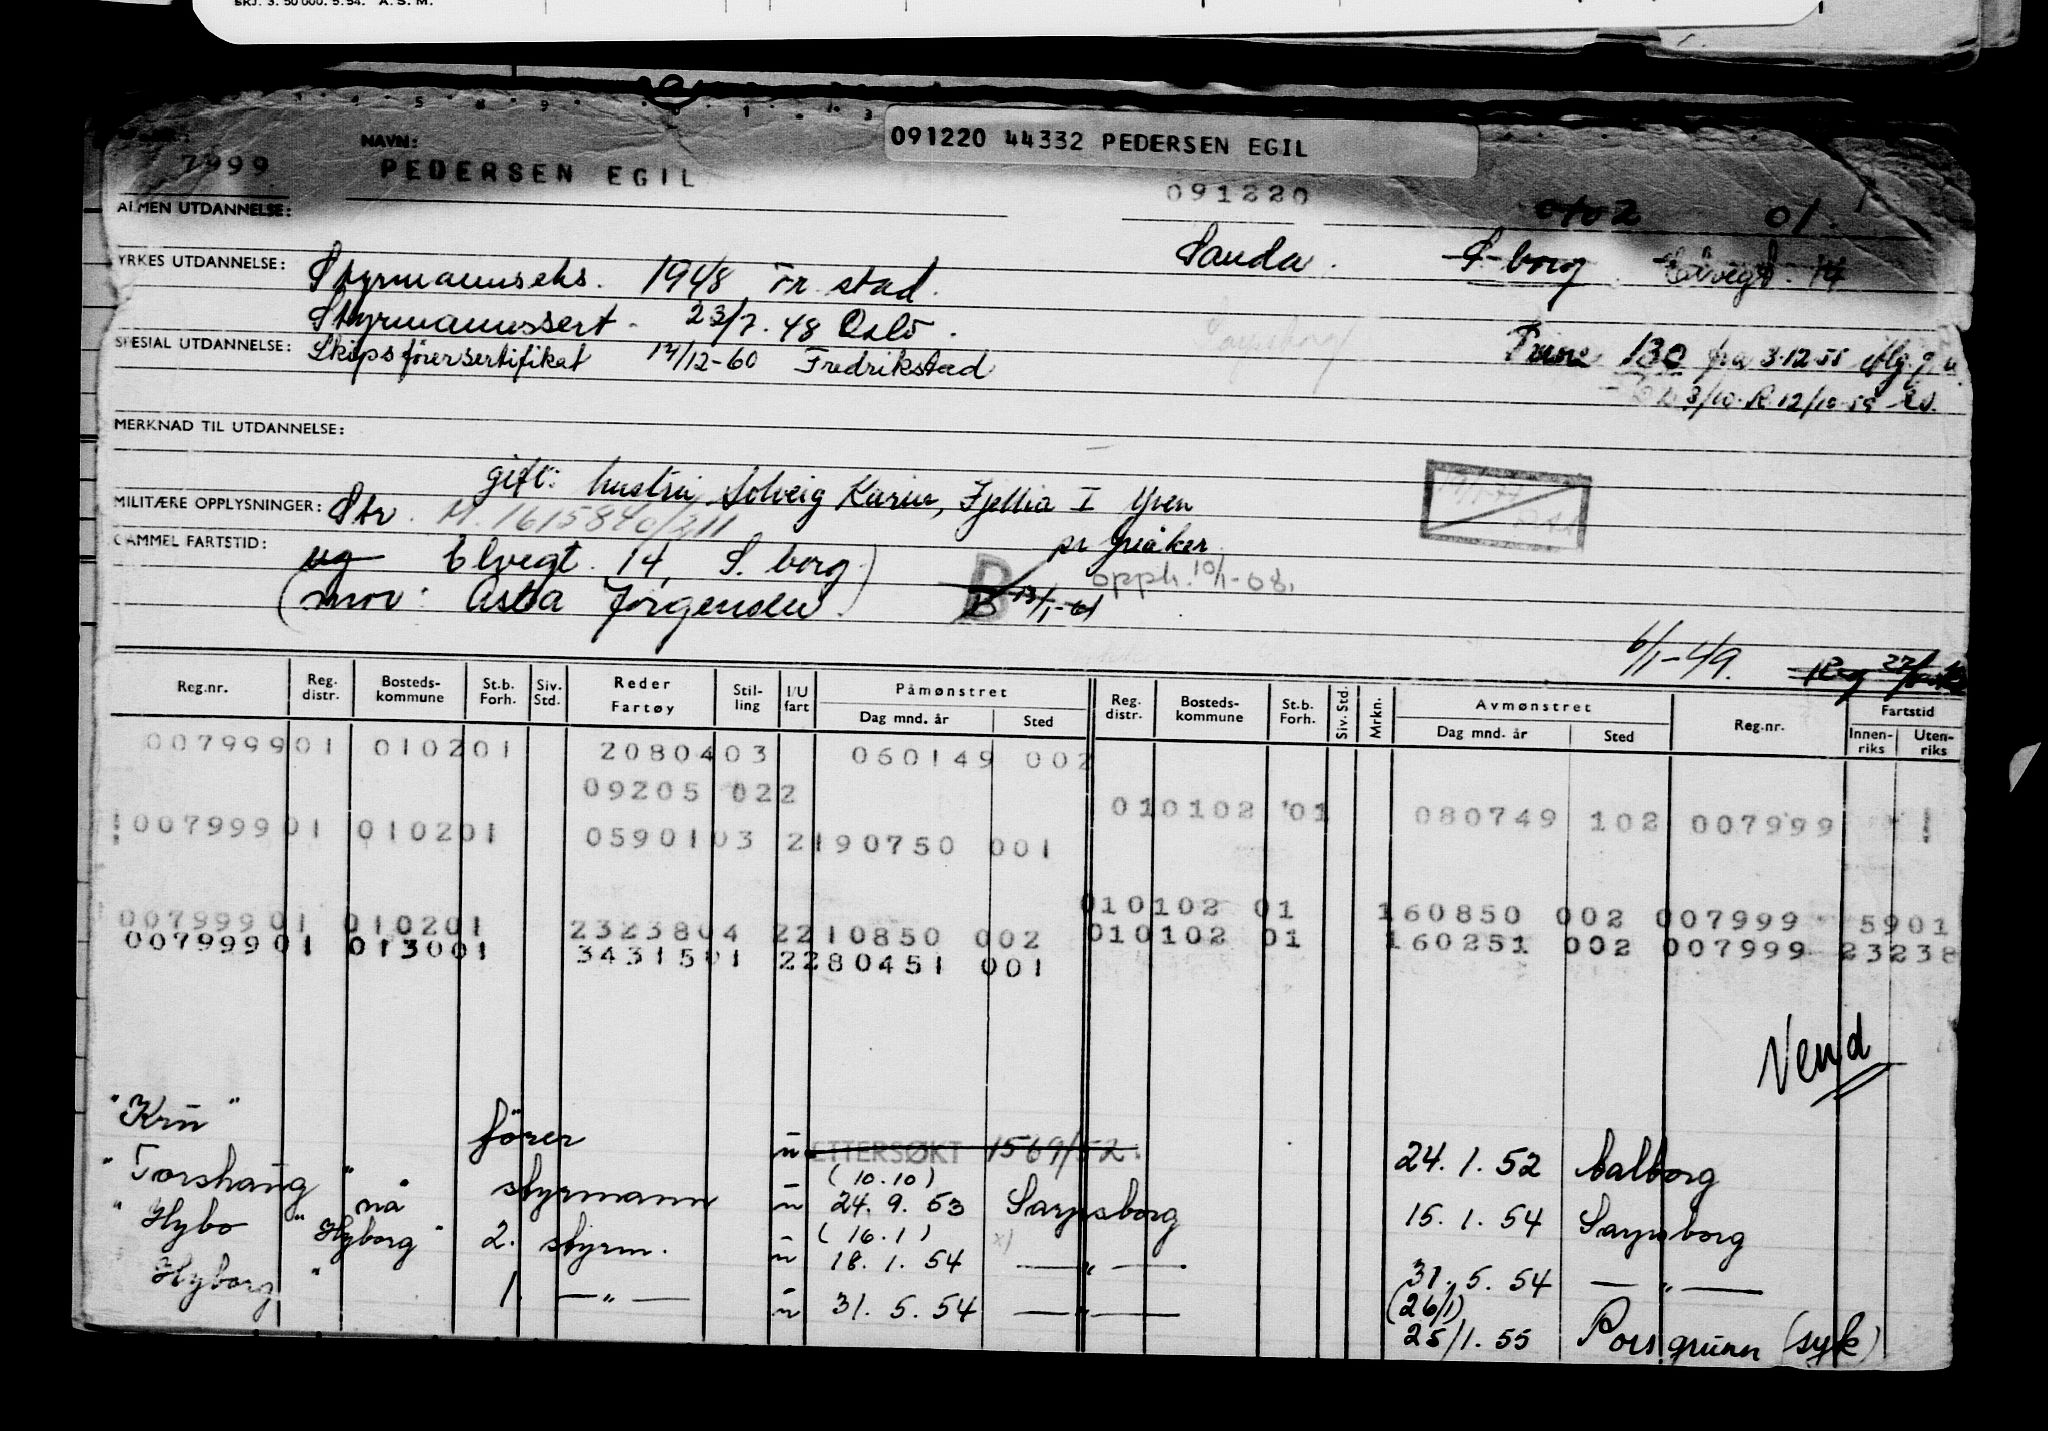 SKJ. 3. 50 000. 5. 54. A. S. M.
091220 44332 PEDERSEN EGIL
NAVN:
7999 PEDERSEN EGIL 091220
ALMEN UTDANNELSE: 2 01
Sauda. S-borg
YRKES UTDANNELSE: Styrmannseks. 1948 Fr.stad.
Styrmannssert. 23/7.48 Oslo.
SPESIAL UTDANNELSE: Skipsførersertifikat 14/12-60 Fredrikstad
130 fra 3.12.55
3/10. R. 12/10-59
MERKNAD TIL UTDANNELSE:
gift: hustru Solveig Karin, Fjellia I Yven
MILITÆRE OPPLYSNINGER: Str. M. 1615840/211
pr Greåker
GAMMEL FARTSTID: ug Elvegt. 14 S. borg
B opph. 10/1-68.
(mor: Asta Jørgensen) 13/1-61
6/1-49. Reg
Reg.nr. Reg. distr. Bosteds-kommune St.b. Forh. Siv. Std. Reder Fartøy Stil-ling I/U fart Påmønstret Dag mnd. år Sted Reg. distr. Bosteds-kommune St.b. Forh. Siv. Std. Mrkn. Avmønstret Dag mnd. år Sted Reg.nr. Fartstid Innen-riks Uten-riks
00799901 010201 2080403 060149 002
09205 022 010102 01 080749 102 007999
00799901 010201 0590103 2190750 001
010102 01 160850 002 007999 5901
00799901 010201 2323804 2210850 002 010102 01 160251 002 007999 23238
00799901 013001 3431501 2280451 001
Vend
"Kru" fører u ETTERSØKT 1569/52. 24.1.52 Aalborg
(10.10)
"Torshaug" styrmann u 24.9.53 Sarpsborg 15.1.54 Sarpsborg
(16.1)
"Hybo" nå "Hyborg" 2. styrm. u 18.1.54 — " — 31.5.54 — " —
(26/1)
Hyborg" 1. — " — u 31.5.54 — " — 25/1.55 Porsgrunn (syk)